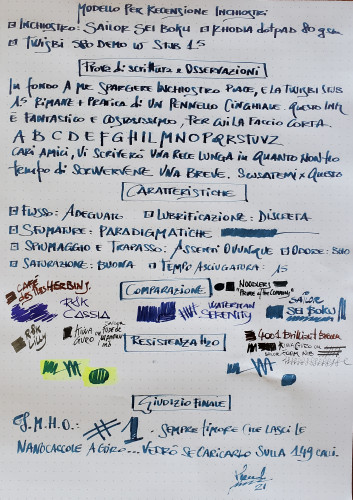 Modello Per Recensione Inchiostri
Inchiostro: Sailor Sei Boku Rhodia dotpad 80 gsm
Twisbi 580 Demo w Stub 1.5
Prove di scrittura e Osservazioni
In fondo a me spargere inchiostro piace, e la Twisbi Stub
1.5 rimane + pratica di un pennello cinghiale. Questo ink
è fantastico e costosissimo, per cui la faccio corta.
A B C D E F G H I L M N O P Q R S T U V Z
Cari amici, vi scriverò una rece lunga in quanto non ho
tempo di scrivervene una breve. Scusatemi x questo
Caratteristiche
Flusso: Adeguato Lubrificazione: Discreta
Sfumature: Paradigmatiche
Spiumaggio e Trapasso: Assenti ovunque Odore: Solo
Saturazione: Buona Tempo Asciugatura: 15
Comparazione
Café des Iles Herbin J.
R&K Cassia
Waterman Serenity
Noodler's "Prime of the Company"
Sailor Sei Boku
R&K Lilly
Resistenza H2O
4001 Brilliant Braun
Giudizio Finale
I.M.H.O.: #1. Sempre timore che lasci le
nanocaccole a giro... vedrò se caricarlo sulla 149 calli.
21